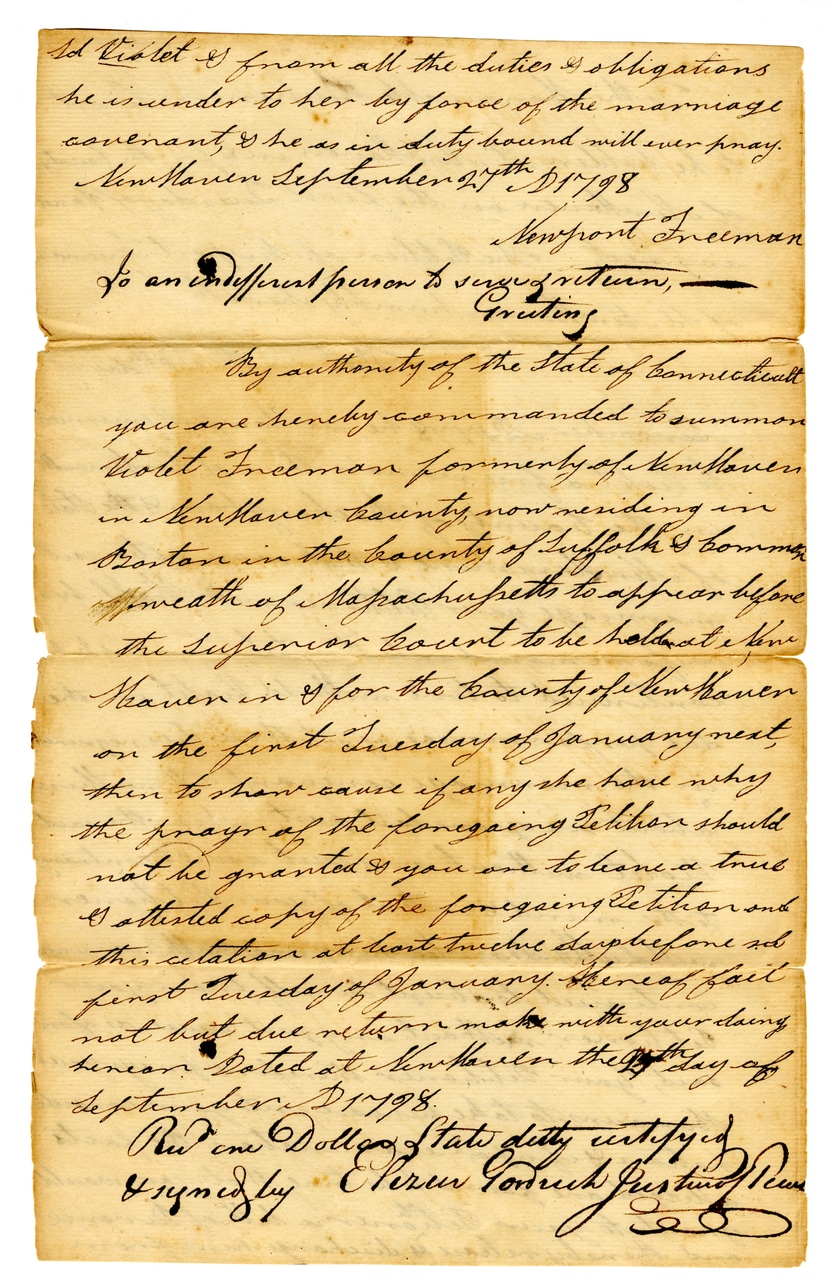 sd Violet & from all the duties & obligations
he is under to her by force of the marriage
covenant, & he as in duty bound will ever pray.
New Haven September 27th AD 1798
Newport Freeman
To an indifferent person to serve & return,
Greeting
By authority of the State of Connecticutt
you are hereby commanded to summon
Violet Freeman formerly of New Haven
in New Haven County, now residing in
Boston in the County of Suffolk & Common
weath of Massachussetts to appear before
the Superior Court to be holden at New
Haven in & for the County of New Haven
on the first Tuesday of January next,
then to show cause if any she have why
the prayr of the foregoing Petition should
not be granted & you are to leave a true
& attested copy of the foregoing Petition and
this citation at least twelve days before sd
first Tuesday of January. Hereof fail
not but due return make with your doings
hereon Dated at New Haven the 27th day of
September AD 1798.
Recd one Dollar State duty certifyed
& signed by Elizur Goodrich Justice of Peace